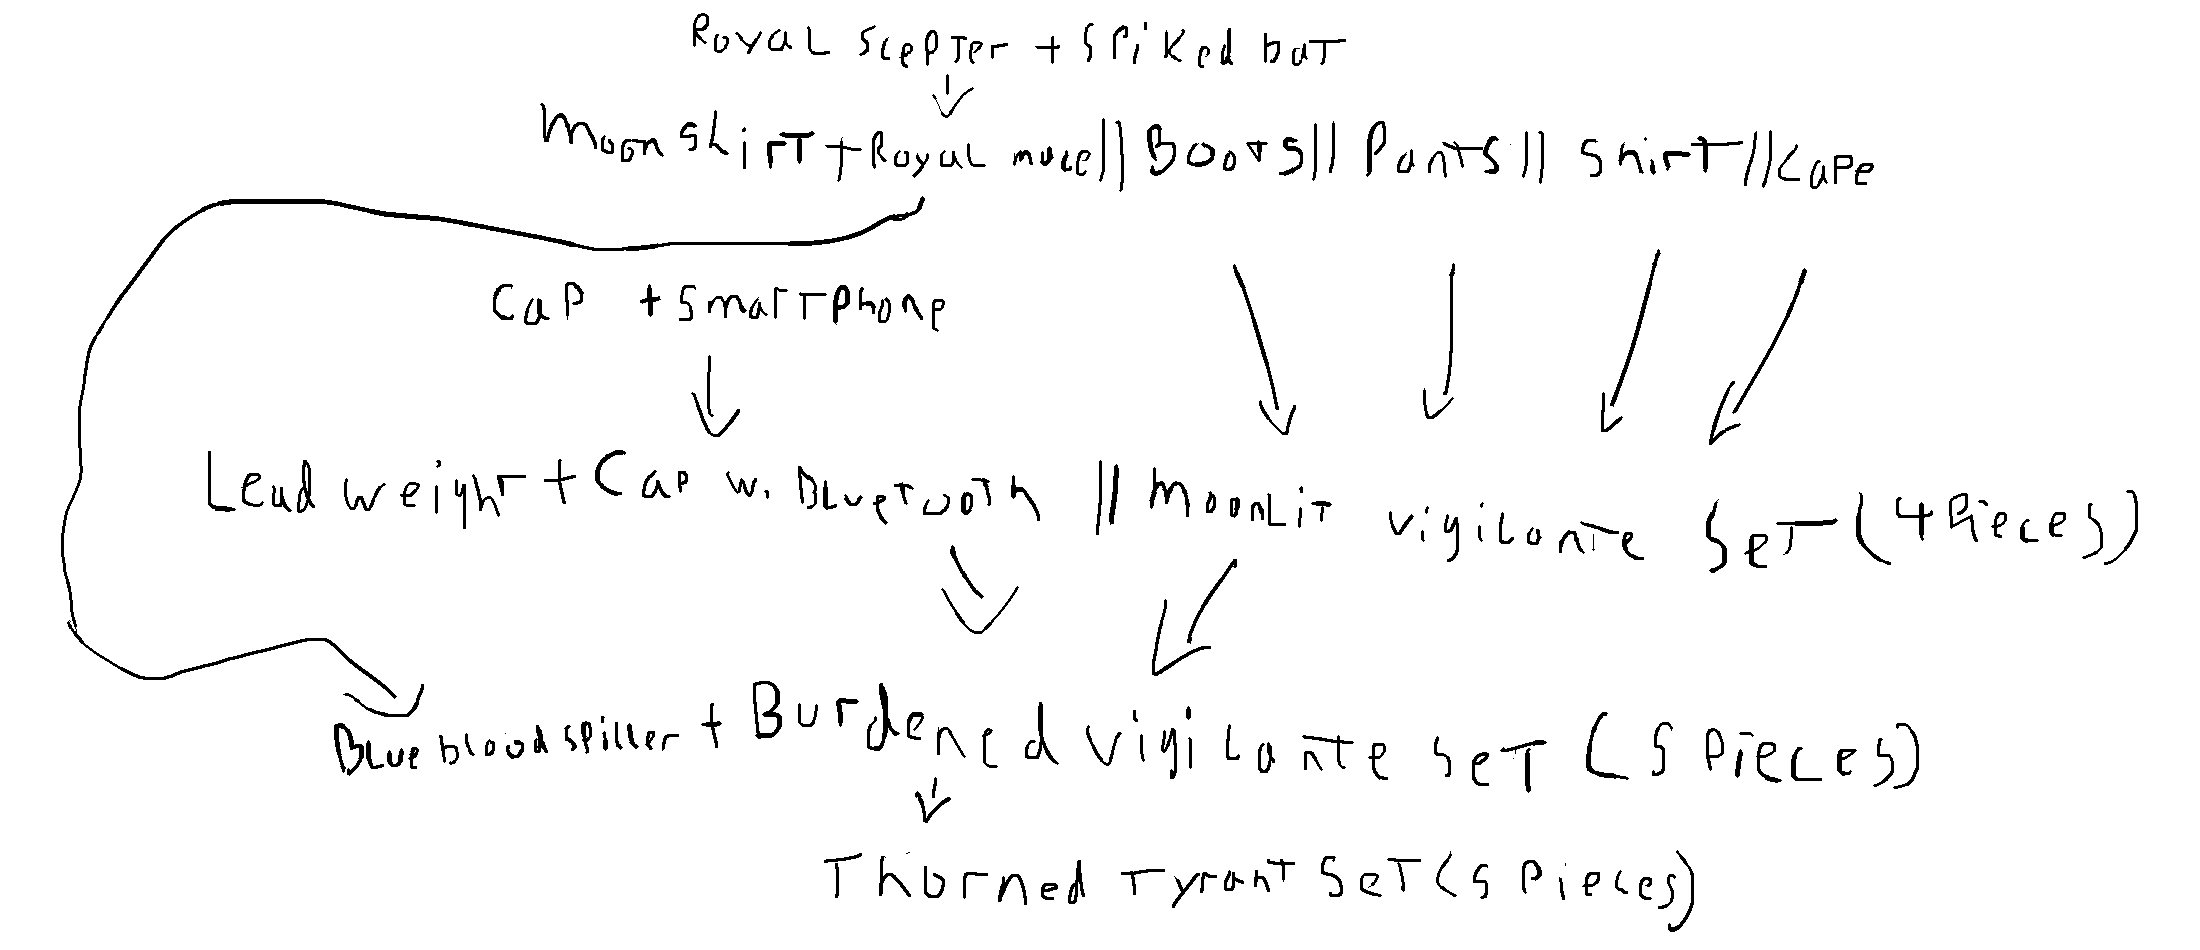 Royal scepter + spiked bat
Moon shirt + Royal mace || Boots || Pants || shirt || cape
Cap + smartphone
Lead weight + Cap w. Bluetooth || Moonlit vigilante set (4 pieces)
Blue blood spiller + Burdened vigilante set (5 pieces)
Thorned Tyrant set (5 pieces)